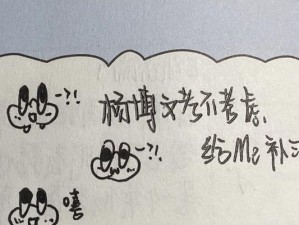 -?!
杨博文考不考虑
-?!
给Me补
嘻